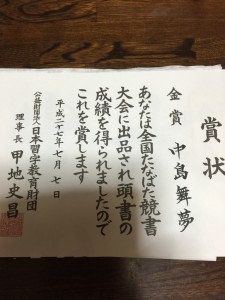 賞状
金賞 中島舞夢
あなたは全国たなばた競書
大会に出品され頭書の
成績を得られましたので
これを賞します
平成二十七年七月七日
公益財団法人日本習字教育財団
理事長 甲地史昌